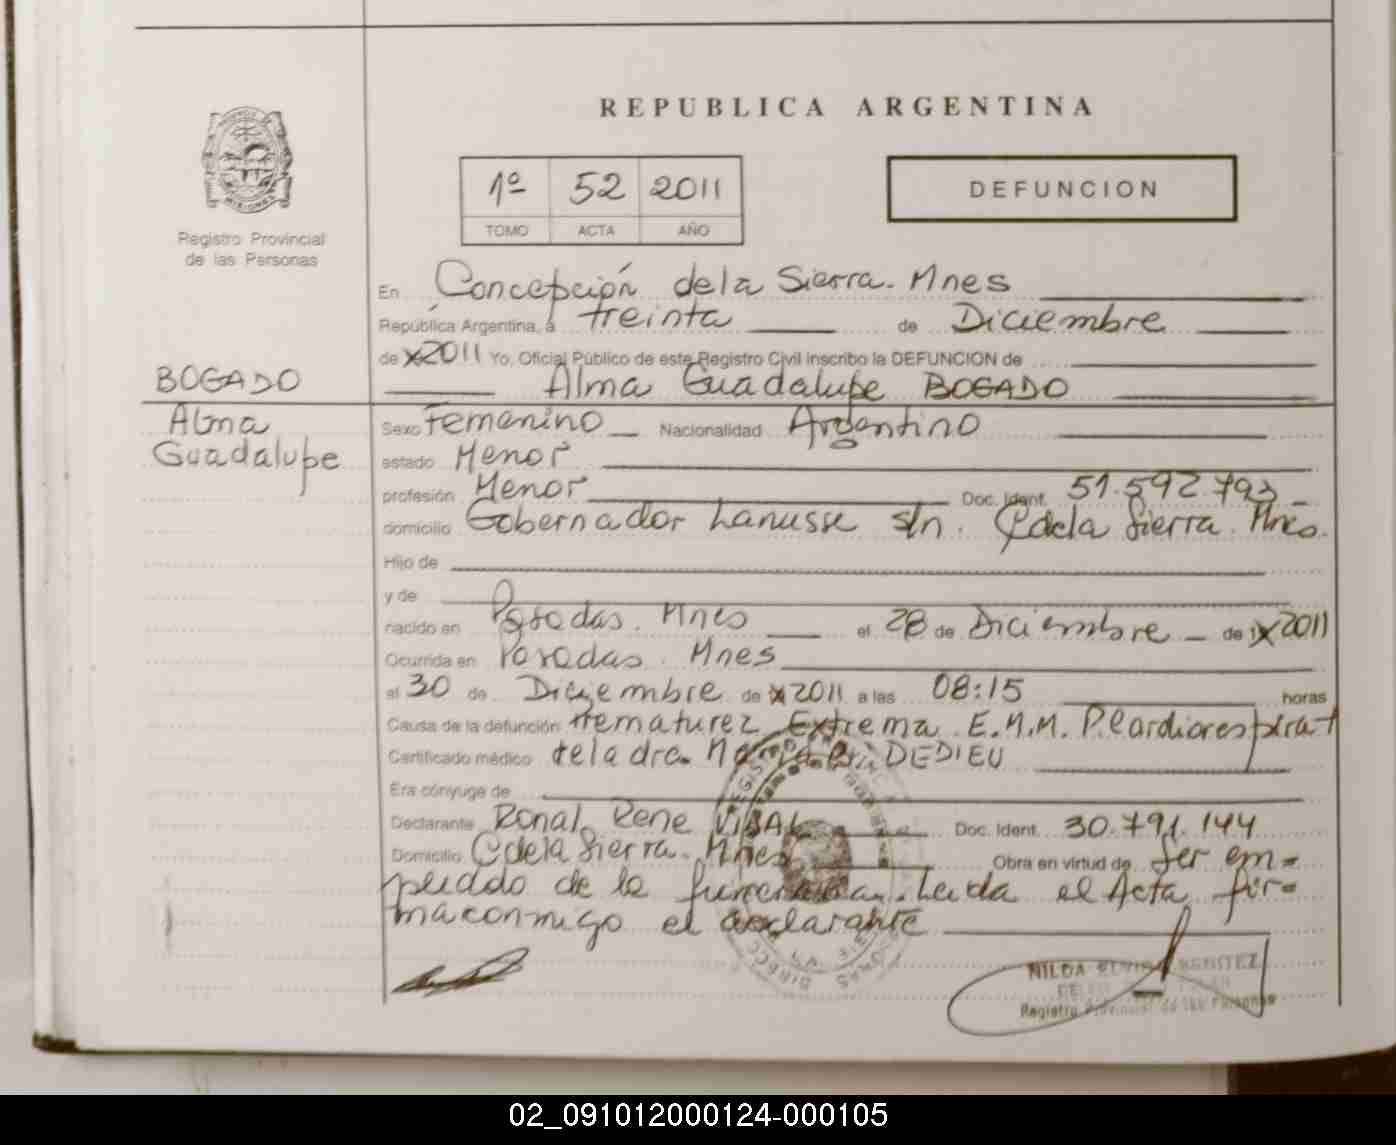 REPUBLICA ARGENTINA
1º 52 2011
TOMO ACTA AÑO
DEFUNCION
Registro Provincial
de las Personas
En Concepción de la Sierra. Mnes
República Argentina, a treinta de Diciembre
de 2011 Yo, Oficial Público de este Registro Civil inscribo la DEFUNCION de
Alma Guadalupe BOGADO
BOGADO
Alma
Guadalupe
Sexo Femenino Nacionalidad Argentino
estado Menor
profesión Menor Doc. Ident. 51.592.793
domicilio Gobernador Lanusse s/n. C de la Sierra. Mnes.
Hijo de
y de
nacido en Posadas. Mnes el 28 de Diciembre de 2011
Ocurrida en Posadas. Mnes
el 30 de Diciembre de 2011 a las 08:15 horas
Causa de la defunción Prematurez Extrema E.M.M. P. Cardiorespirat
Certificado médico de la dra. DEDIEU
Era cónyuge de
Declarante Ronal Rene VIDAL Doc. Ident. 30.791.144
Domicilio C de la Sierra. Mnes Obra en virtud de ser em=
pleado de la funeraria. Leida el Acta fir=
ma conmigo el declarante
NILDA BENITEZ
Registro Provincial de las Personas
02_091012000124-000105